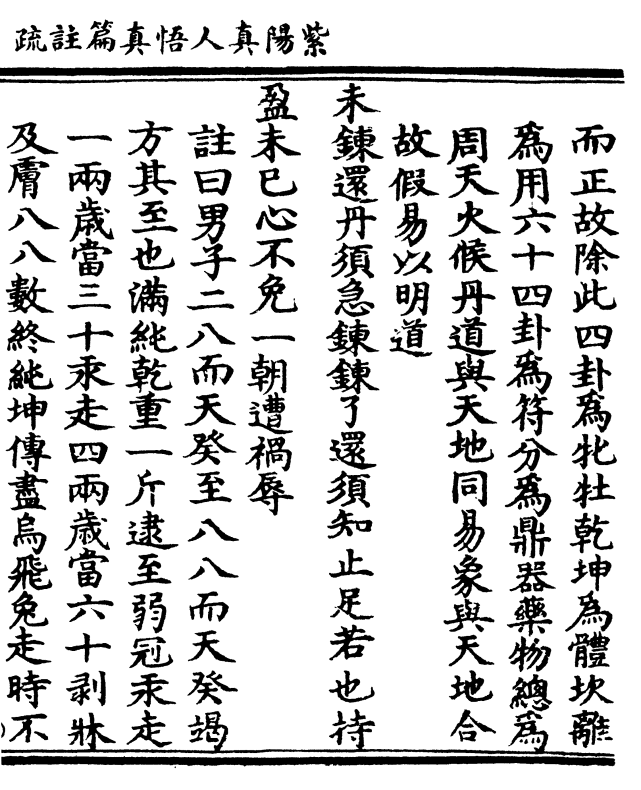 紫陽真人悟真篇註疏
而正故除此四卦爲牝牡乾坤爲體坎離
爲用六十四卦爲符分爲鼎器藥物總爲
周天火候丹道與天地同易象與天地合
故假易以明道
未鍊還丹須急鍊鍊了還須知止足若也持
盈未已心不免一朝遭禍辱
註曰男子二八而天癸至八八而天癸竭
方其至也滿純乾重一斤逮至弱冠汞走
一兩歲當三十汞走四兩歲當六十剥牀
及膚八八數終純坤傳盡烏飛兔走時不